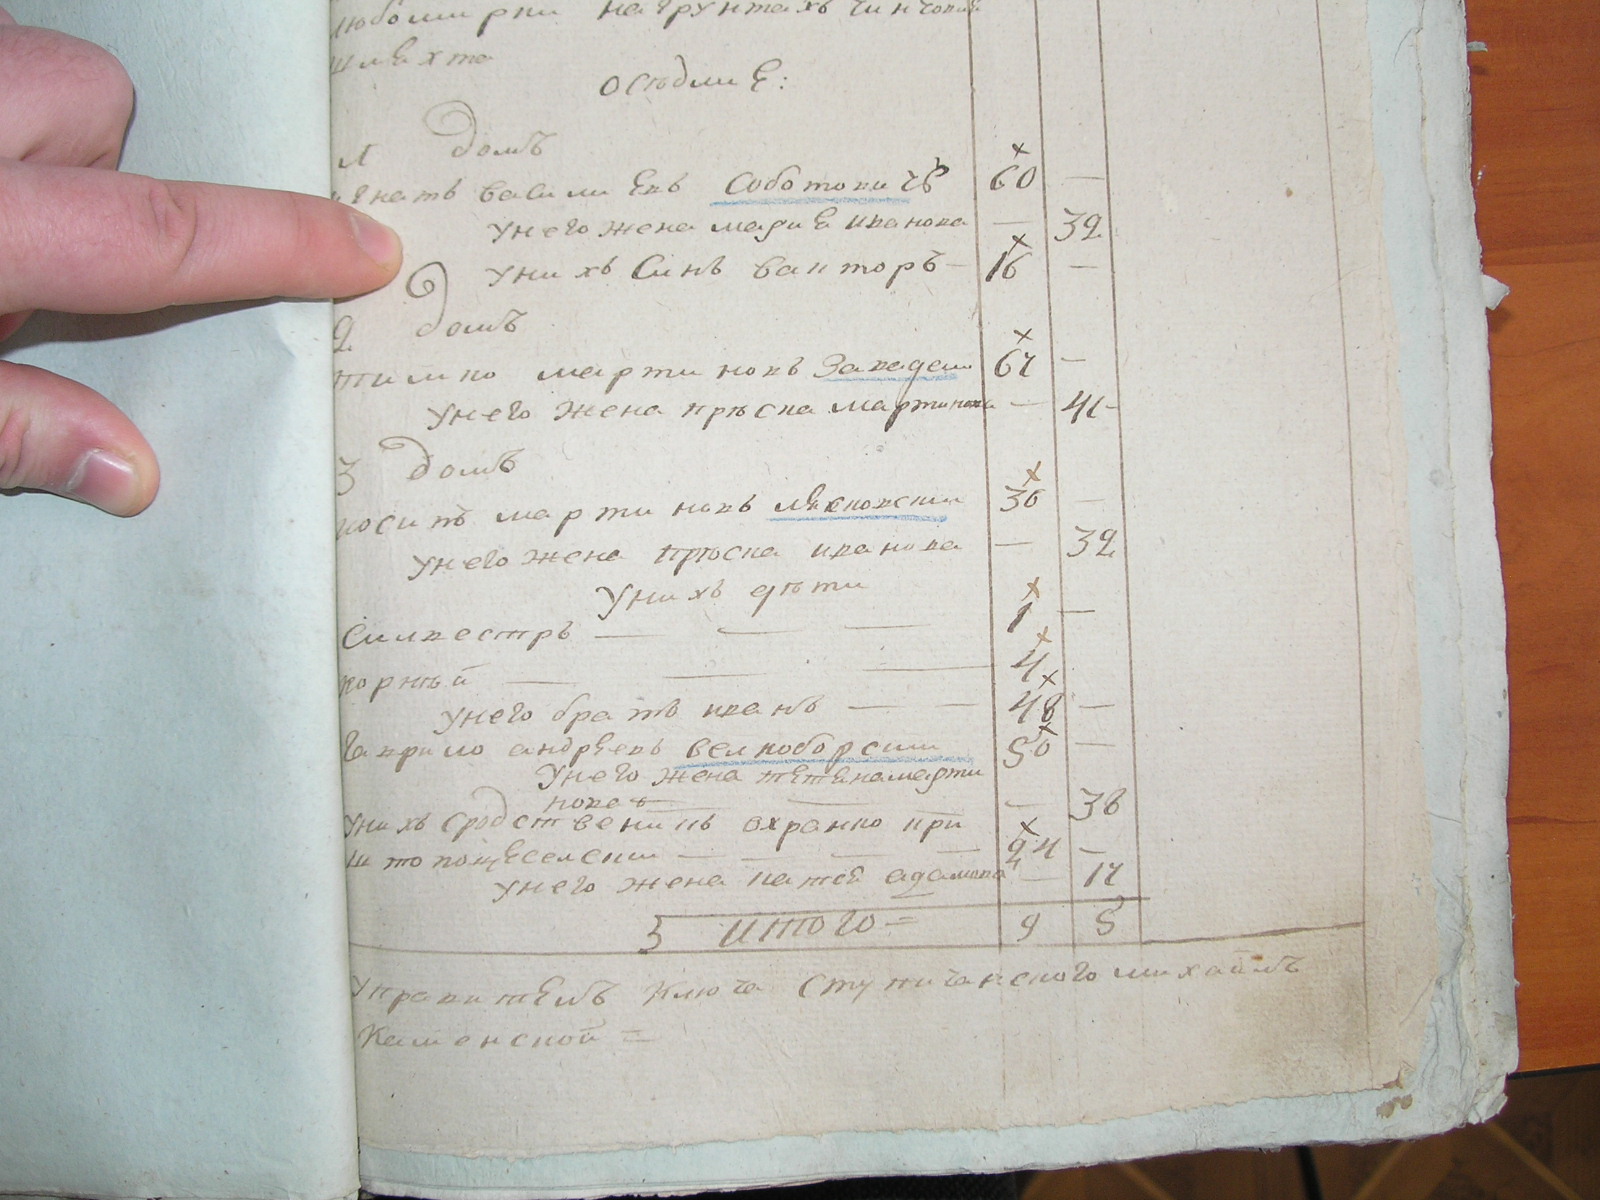 на грунтахъ чиншовий
шляхта
оседлиє:
1 домъ
игнатъ василиевъ соботовичъ 60 —
у него жена мариє иванова — 32
у нихъ синъ ванторъ — 16 —
2 домъ
тимко мартиновъ 67 —
у него жена пръска мартинова — 41
3 домъ
иосипъ мартиновъ 36 —
у него жена пръска иванова — 32
у нихъ дѣти
силвестръ — — — 1 —
корнѣй — — — 4
у него братъ иванъ — — 48 —
гаврило андрєевъ велкоборсии 50 —
у него жена тєтєна марти
нова — — — 38
у нихъ сродственикъ охранко при
— — — — 24 —
у него жена катєє адамова — 17
3 итого = 9 5
управитєлъ ключа ступичанского михайлъ
каменской =